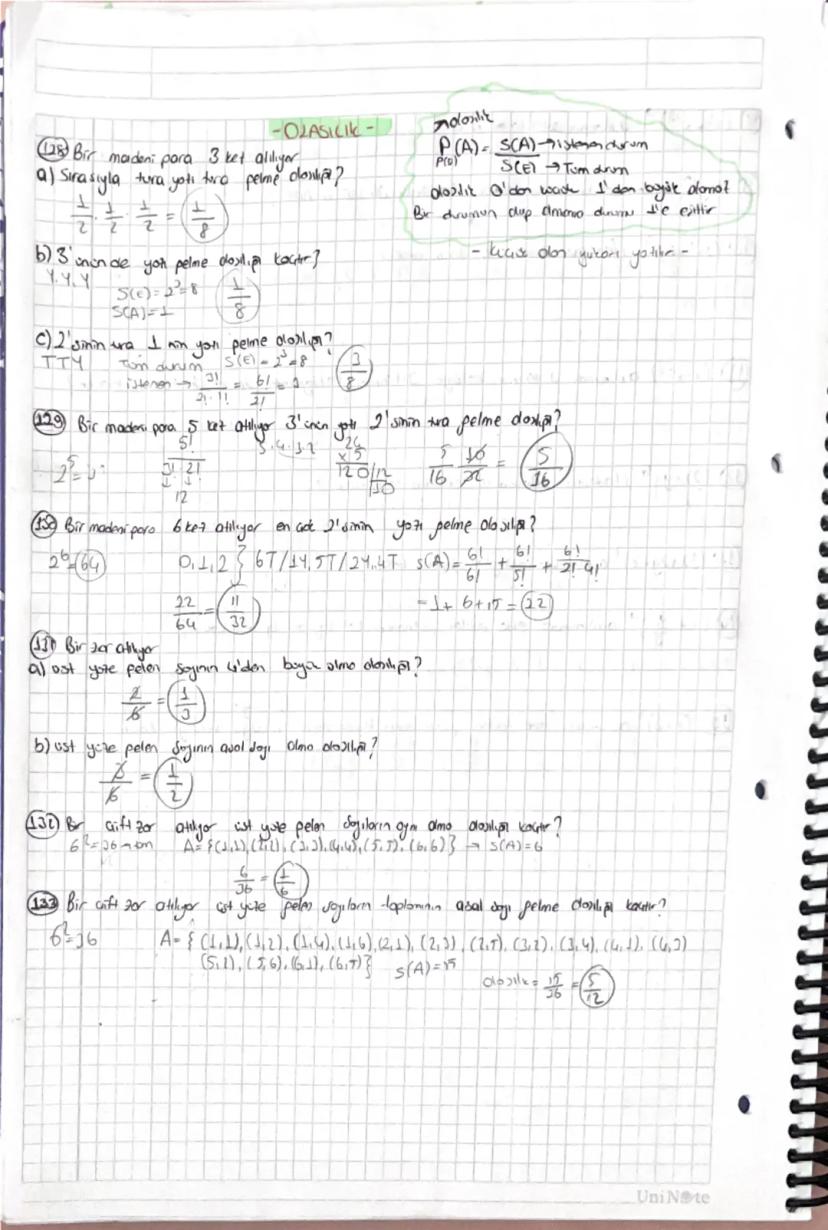 -OLASILIK-
olasılık
P(A) = S(A) → istenen durum
P(O) S(E) → Tüm durum
olasılık 0'dan küçük 1'den büyük olamaz
Bir durumun olup olmama durumu 1'e eşittir
- küçük olan yukarı yazılır -
128) Bir madeni para 3 kez atılıyor
a) Sırasıyla tura yazı tura gelme olasılığı?
1/2 . 1/2 . 1/2 = 1/8
b) 3'ününde yazı gelme olasılığı kaçtır?
Y, Y, Y S(E) = 2³ = 8 1/8
S(A) = 1
c) 2'sinin tura 1 nin yazı gelme olasılığı?
TTY Tüm durum S(E) = 2³ = 8 3/8
istenen → 3!/2!.1! = 6!/2! = 3
129) Bir madeni para 5 kez atılıyor 3'ünün yazı 2'sinin tura gelme olasılığı?
5! 5.4.3.2 24
2⁵ = 3! 2! x 5 5/16 10/32 = 5/16
120/12
12 10
130) Bir madeni para 6 kez atılıyor en çok 2'sinin yazı gelme olasılığı?
2⁶ = 64 0,1,2 } 6T/1Y,5T/2Y,4T S(A) = 6!/6! + 6!/5! + 6!/2!.4!
22/64 = 11/32 = 1 + 6 + 15 = 22
131) Bir zar atılıyor
a) üst yüze gelen sayının 4'den büyük olma olasılığı?
2/6 = 1/3
b) üst yüze gelen sayının asal sayı olma olasılığı?
3/6 = 1/2
132) Bir çift zar atılıyor üst yüze gelen sayıların aynı olma olasılığı kaçtır?
6² = 36 A = {(1,1), (2,2), (3,3), (4,4), (5,5), (6,6)} → S(A) = 6
6/36 = 1/6
133) Bir çift zar atılıyor üst yüze gelen sayıların toplamının asal sayı gelme olasılığı kaçtır?
6² = 36 A = { (1,1), (1,2), (1,4), (1,6), (2,1), (2,3), (2,5), (3,2), (3,4), (4,1), (4,3)
(5,2), (5,6), (6,1), (6,5)} S(A) = 15
olasılık = 15/36 = 5/12
UniNote